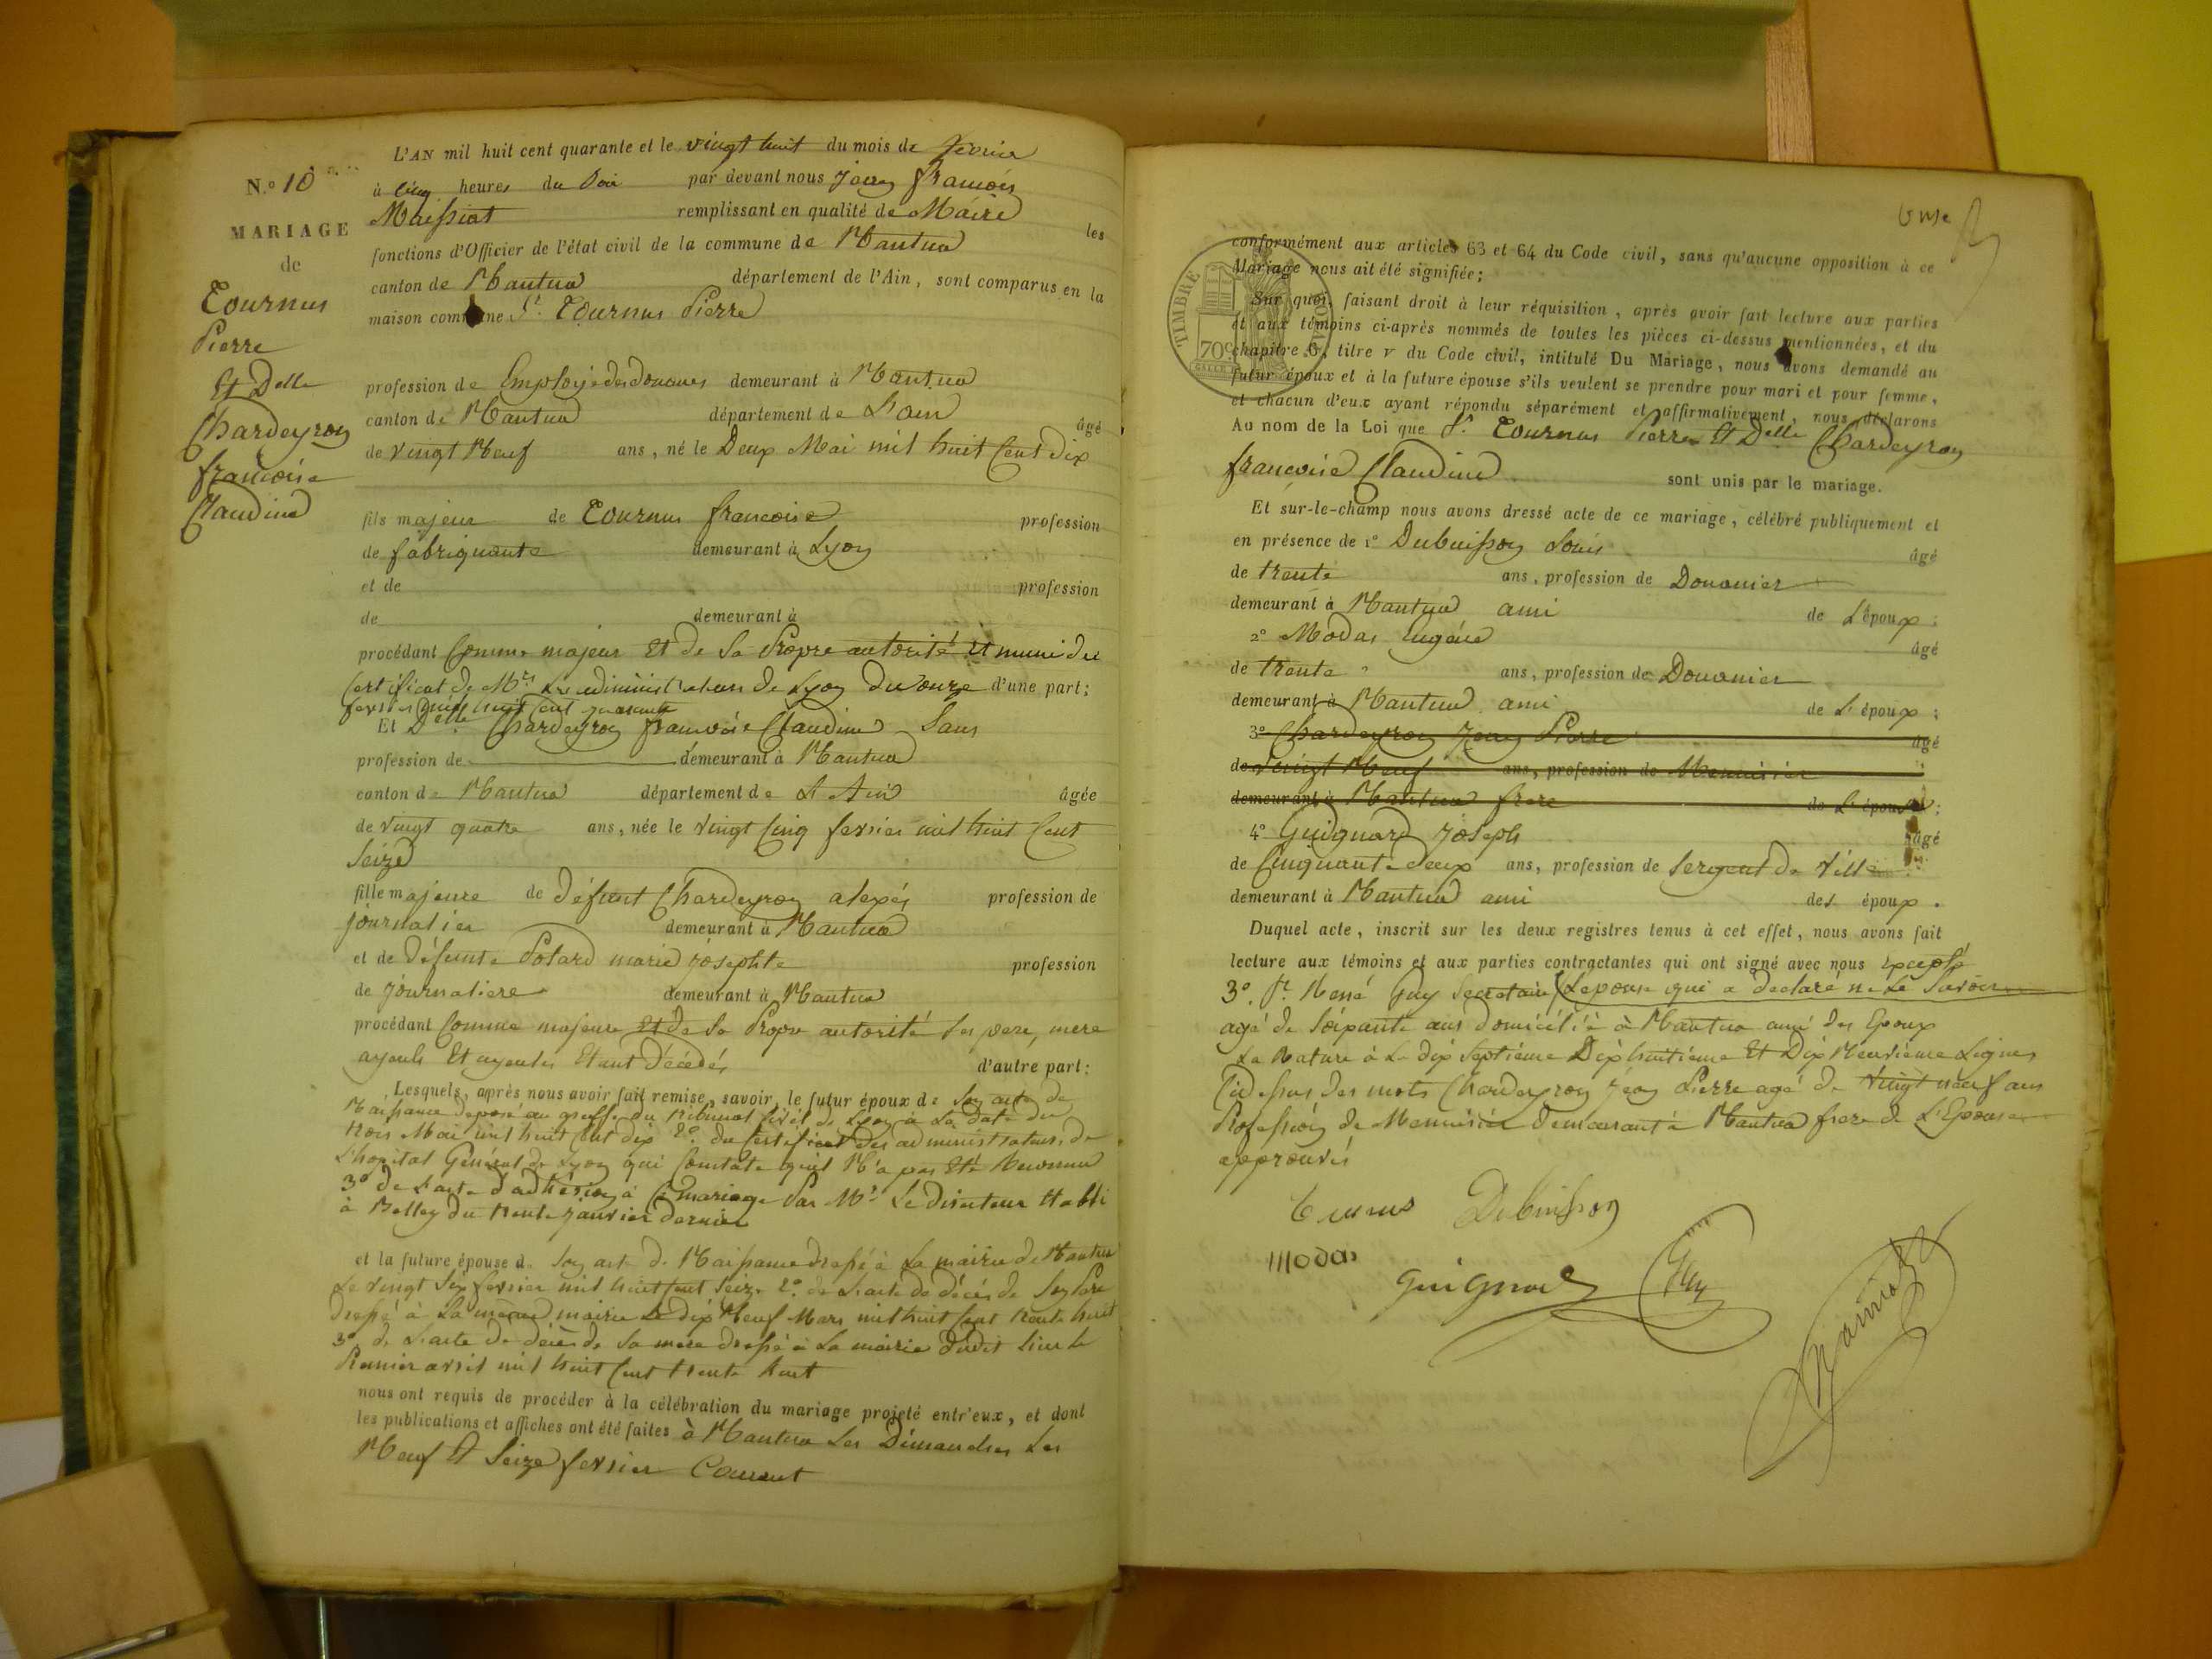 L'AN mil huit cent quarante et le vingt huit du mois de fevrier
N.º 10
à cinq heures du Soir par devant nous jean francois
Maissiat remplissant en qualité de Maire les
MARIAGE
fonctions d'Officier de l'état civil de la commune de Nantua
de
canton de Nantua département de l'Ain, sont comparus en la
Tournus
maison commune Sr. Tournus Pierre
Pierre
Et Delle
profession de Employé des douanes demeurant à Nantua
Chardeyron
canton de Nantua département de L'ain âgé
francoise
de vingt Neuf ans, né le Deux Mai mil huit Cent dix
Claudine
fils majeur de Tournus francoise profession
de fabriquante demeurant à Lyon
et de profession
de demeurant à
procédant Comme majeur Et de Sa Propre autorité Et muni du
Certificat de Mrs. Les administrateurs de Lyon du onze d'une part;
fevrier mil huit Cent quarante
Et Delle Chardeyron francoise Claudine Sans
profession de demeurant à Nantua
canton de Nantua département de L'Ain âgée
de vingt quatre ans, née le vingt Cinq fevrier mil huit Cent
Seize
fille majeure de défunt Chardeyron alexis profession de
journalier demeurant à Nantua
et de défunte Potard marie josephte profession
de journaliere demeurant à Nantua
procédant Comme majeure Et de Sa Propre autorité Ses pere, mere
ayeuls Et ayeules Etant Décédés d'autre part:
Lesquels, après nous avoir fait remise, savoir, le futur époux de Son acte de
Naissance déposé au greffe du tribunal Civil de Lyon à La date du
trois Mai mil huit Cent dix 2º. du Certificat des administrateurs de
L'hopital Général de Lyon qui Constate qu'il N'a pas Eté Reconnu
3º de L'acte d'adhésion à Ce mariage Par Mr. Le directeur Etabli
à Belley du trente janvier dernier
et la future épouse de Son acte de Naissance dressé à La mairie de Nantua
Le vingt Six fevrier mil huit Cent Seize 2º. de L'acte de décès de Son Pere
dressé à La même mairie Le dix Neuf Mars mil huit Cent trente huit
3º. de L'acte de décès de Sa mere dressé à La mairie dudit lieu le
Premier avril mil huit Cent trente huit
nous ont requis de procéder à la célébration du mariage projeté entr'eux, et dont
les publications et affiches ont été faites à Nantua Les Dimanches Les
Neuf Et Seize fevrier Courant
conformément aux articles 63 et 64 du Code civil, sans qu'aucune opposition à ce
Mariage nous ait été signifiée;
TIMBRE
70 c.
Sur quoi, faisant droit à leur réquisition, après avoir fait lecture aux parties
et aux témoins ci-après nommés de toutes les pièces ci-dessus mentionnées, et du
chapitre 6, titre v du Code civil, intitulé Du Mariage, nous avons demandé au
futur époux et à la future épouse s'ils veulent se prendre pour mari et pour femme,
et chacun d'eux ayant répondu séparément et affirmativement, nous déclarons
Au nom de la Loi que Sr. Tournus Pierre Et Delle Chardeyron
francoise Claudine sont unis par le mariage.
Et sur-le-champ nous avons dressé acte de ce mariage, célébré publiquement et
en présence de 1º Dubuisson Louis âgé
de trente ans, profession de Douanier
demeurant à Nantua ami de L'époux;
2º Modas Eugéne âgé
de trente ans, profession de Douanier
demeurant à Nantua ami de L'époux;
3º Chardeyron Jean Pierre âgé
de vingt Neuf ans, profession de Menuisier
demeurant à Nantua frere de L'épouse;
4º Guignard joseph âgé
de Cinquante deux ans, profession de Sergent de Ville
demeurant à Nantua ami des époux.
Duquel acte, inscrit sur les deux registres tenus à cet effet, nous avons fait
lecture aux témoins et aux parties contractantes qui ont signé avec nous Excepté
3º. Sr. René Guy Secretaire Lepouse qui a declaré ne Le Savoir
agé de Soixante ans domicilié à Nantua ami des Epoux
La Rature à La dix Septième Dix huitième Et Dix Neuvième Lignes
Cidessus des mots Chardeyron jean Pierre agé de vingt neuf ans
Profession de Menuisier Demeurant à Nantua frere de L'Epouse
approuvés
Tournus Dubuisson
Modas
Guignard Guy